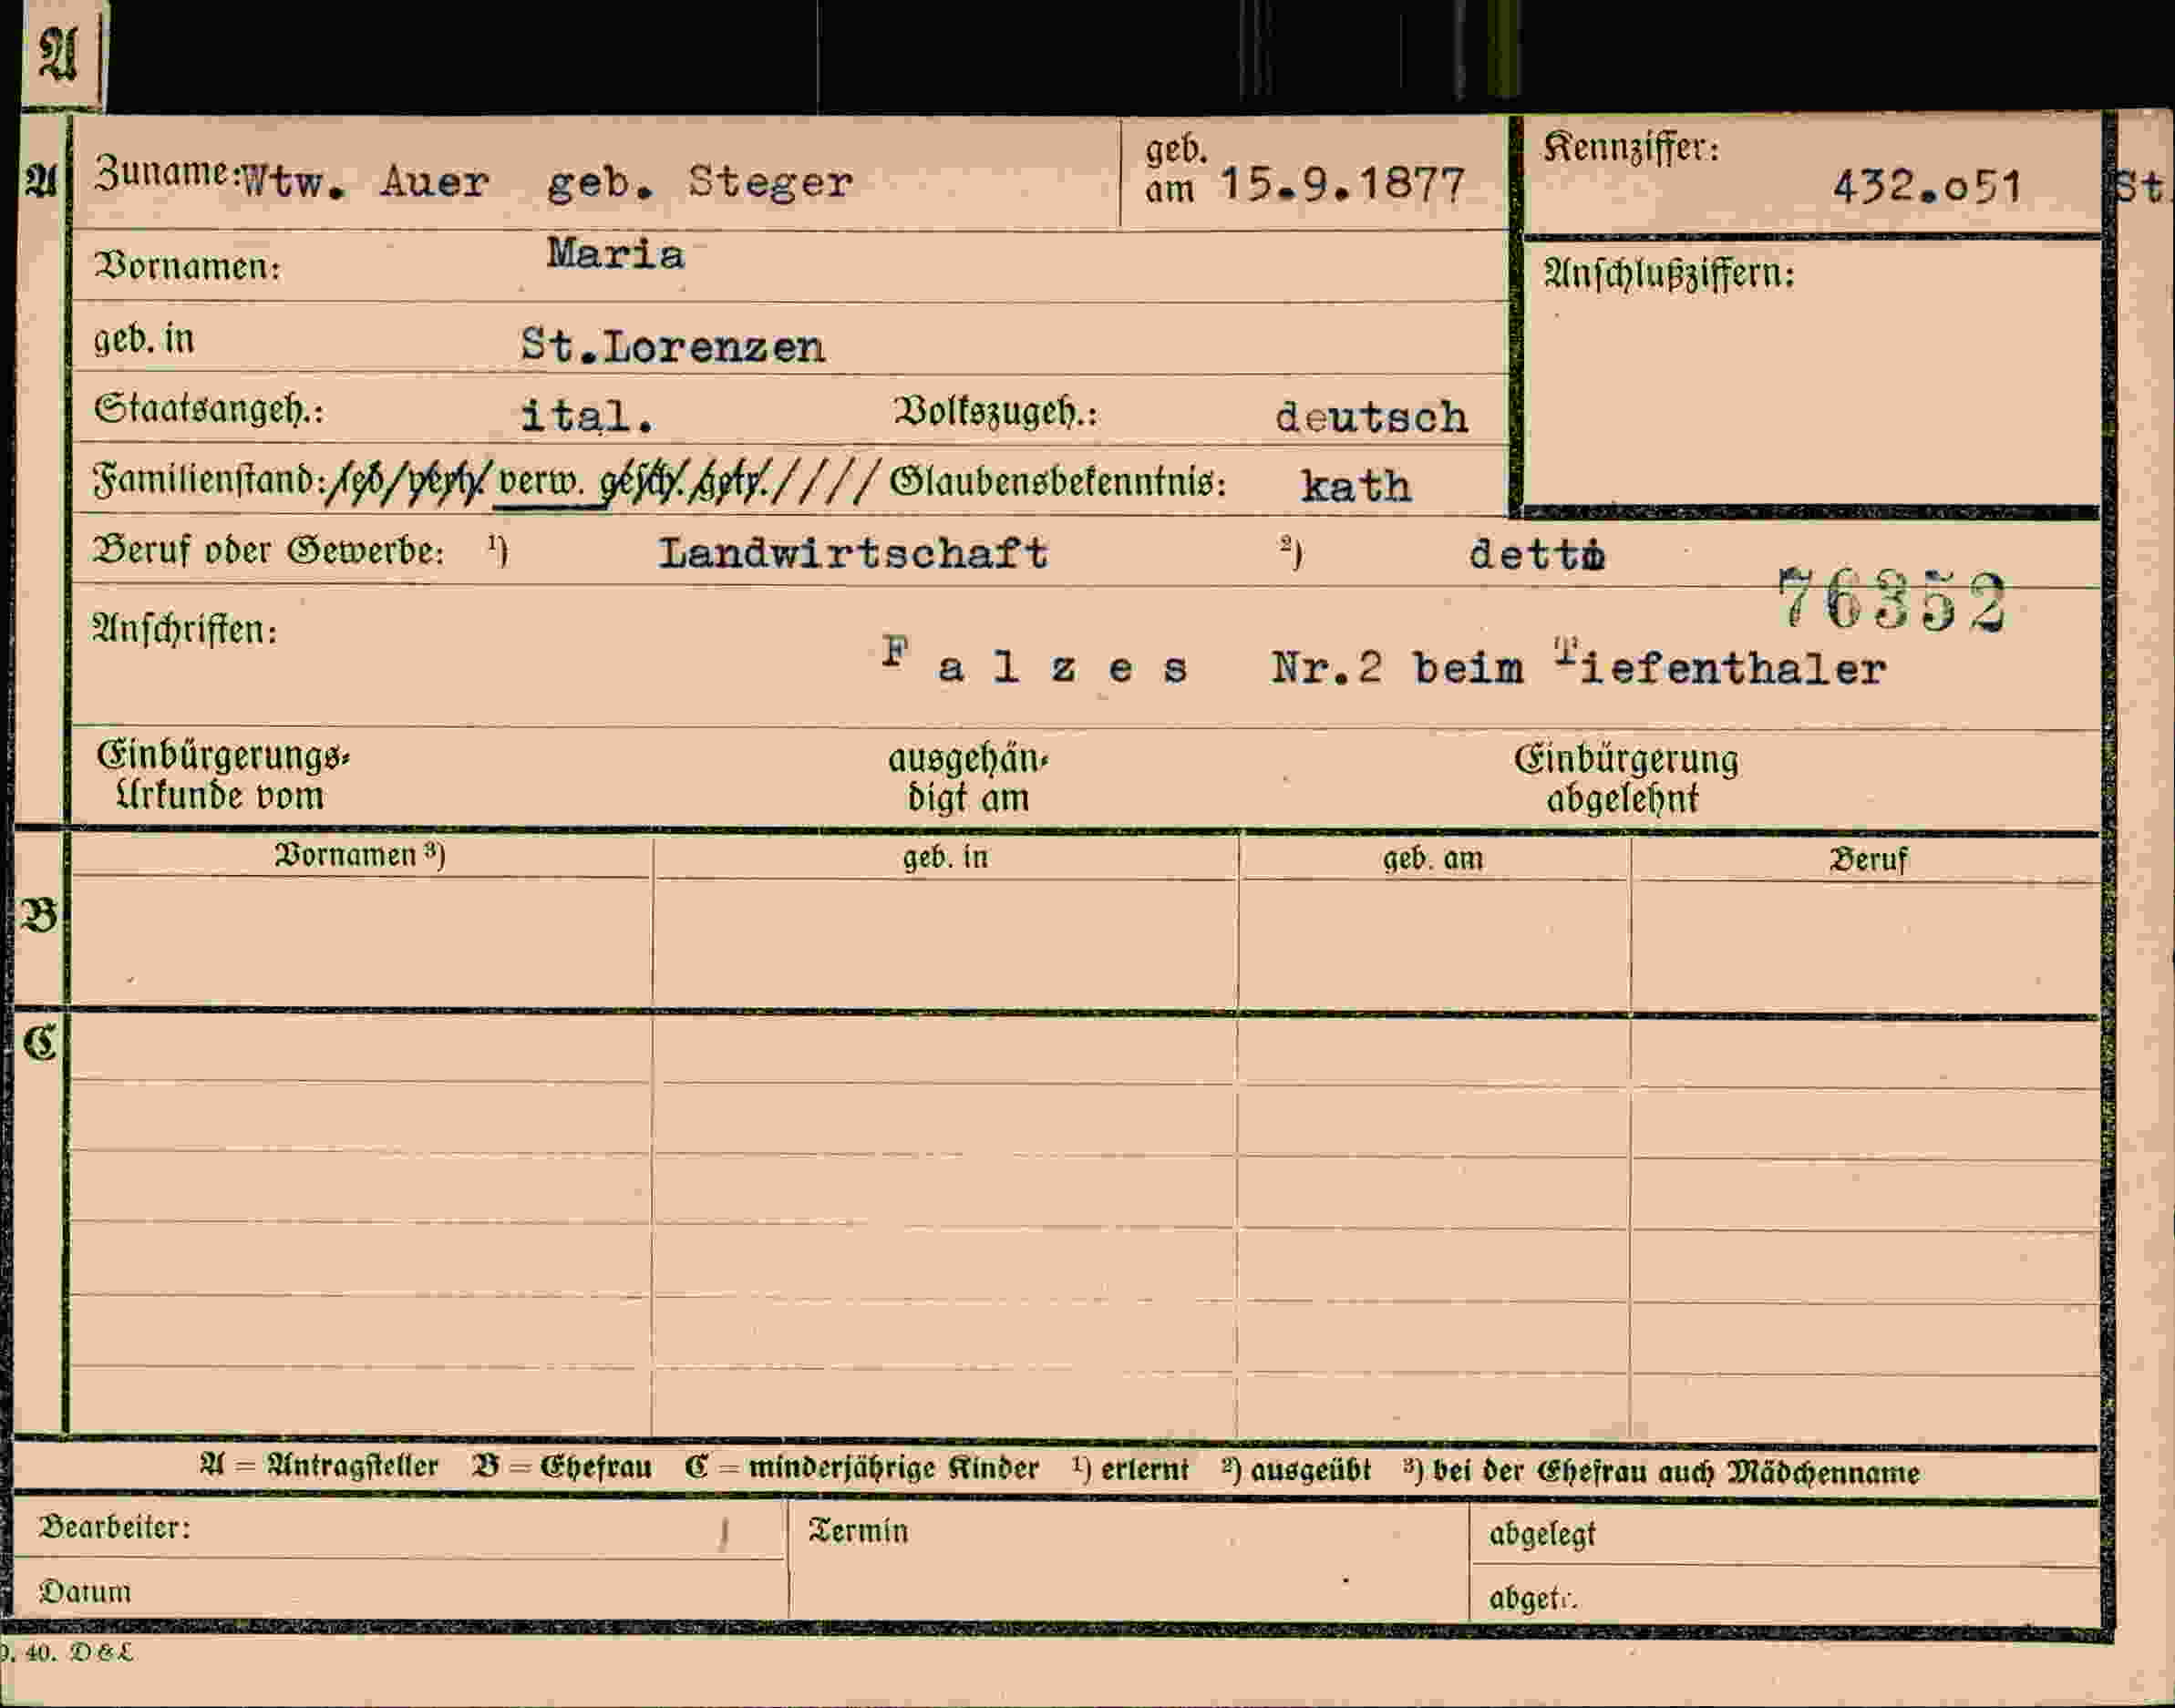 A
A Zuname: Wtw. Auer geb. Steger geb. am 15.9.1877 Kennziffer: 432.o51 St.
Vornamen: Maria Anschlußziffern:
geb. in St.Lorenzen
Staatsangeh.: ital. Volkszugeh.: deutsch
Familienstand: led. verh. verw. gesch. getr. ///// Glaubensbekenntnis: kath
Beruf oder Gewerbe: ¹) Landwirtschaft ²) detto
76352
Anschriften: F a l z e s Nr.2 beim Tiefenthaler
Einbürgerungs- ausgehän- Einbürgerung
Urkunde vom digt am abgelehnt
Vornamen ³) geb. in geb. am Beruf
B
C
A = Antragsteller B = Ehefrau C = minderjährige Kinder ¹) erlernt ²) ausgeübt ³) bei der Ehefrau auch Mädchenname
Bearbeiter: Termin abgelegt
Datum abgetr.
40. D&L